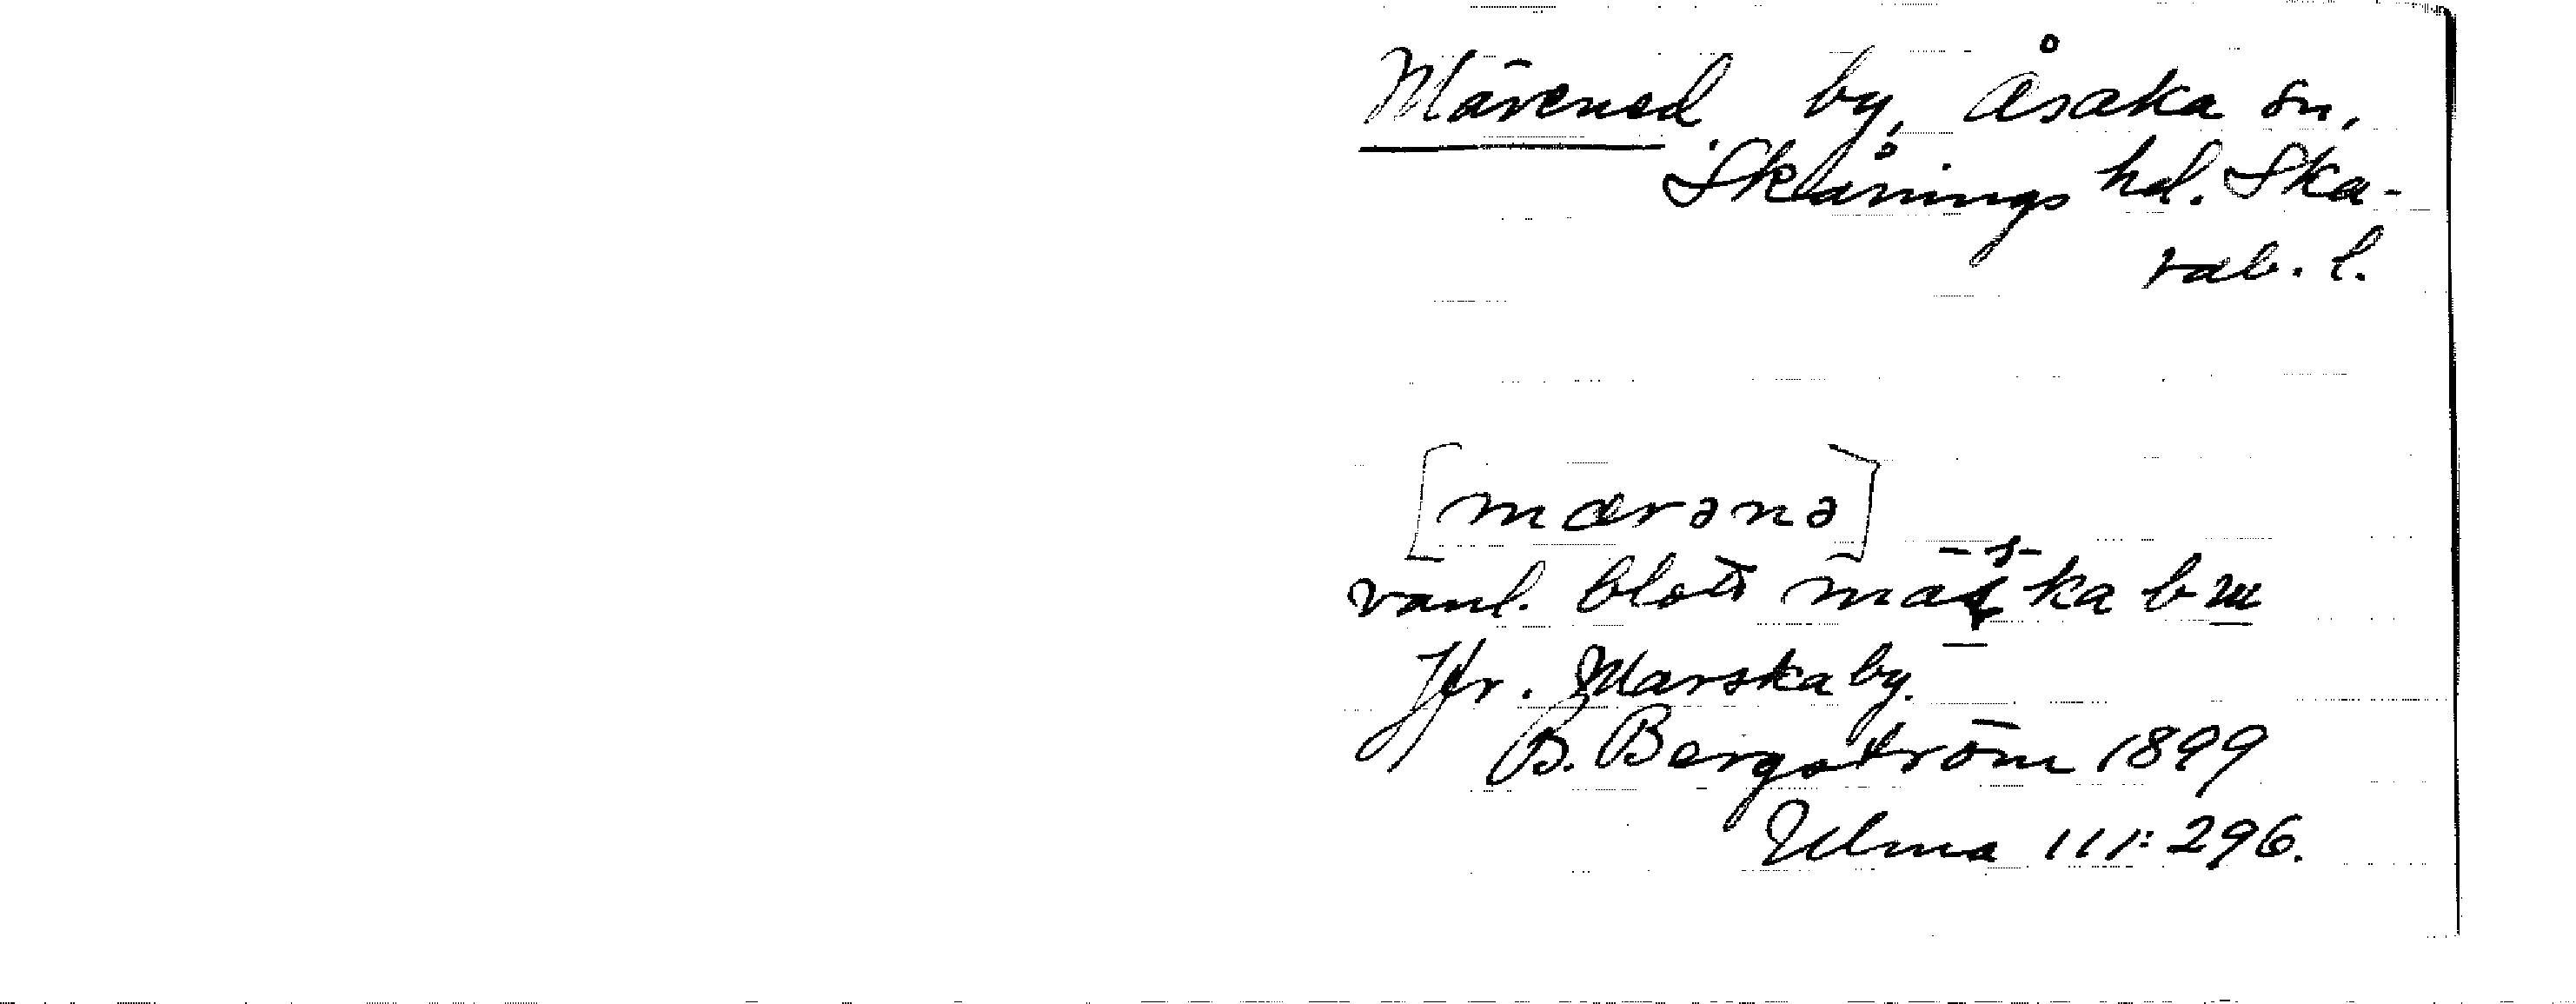 Mävened by, Åsaka sn,
Skånings hd. Ska-
rab. l.
[mærənə]
vanl. blott
Jfr. Marskaby.
B. Bergström 1899
Ulma 111:296.